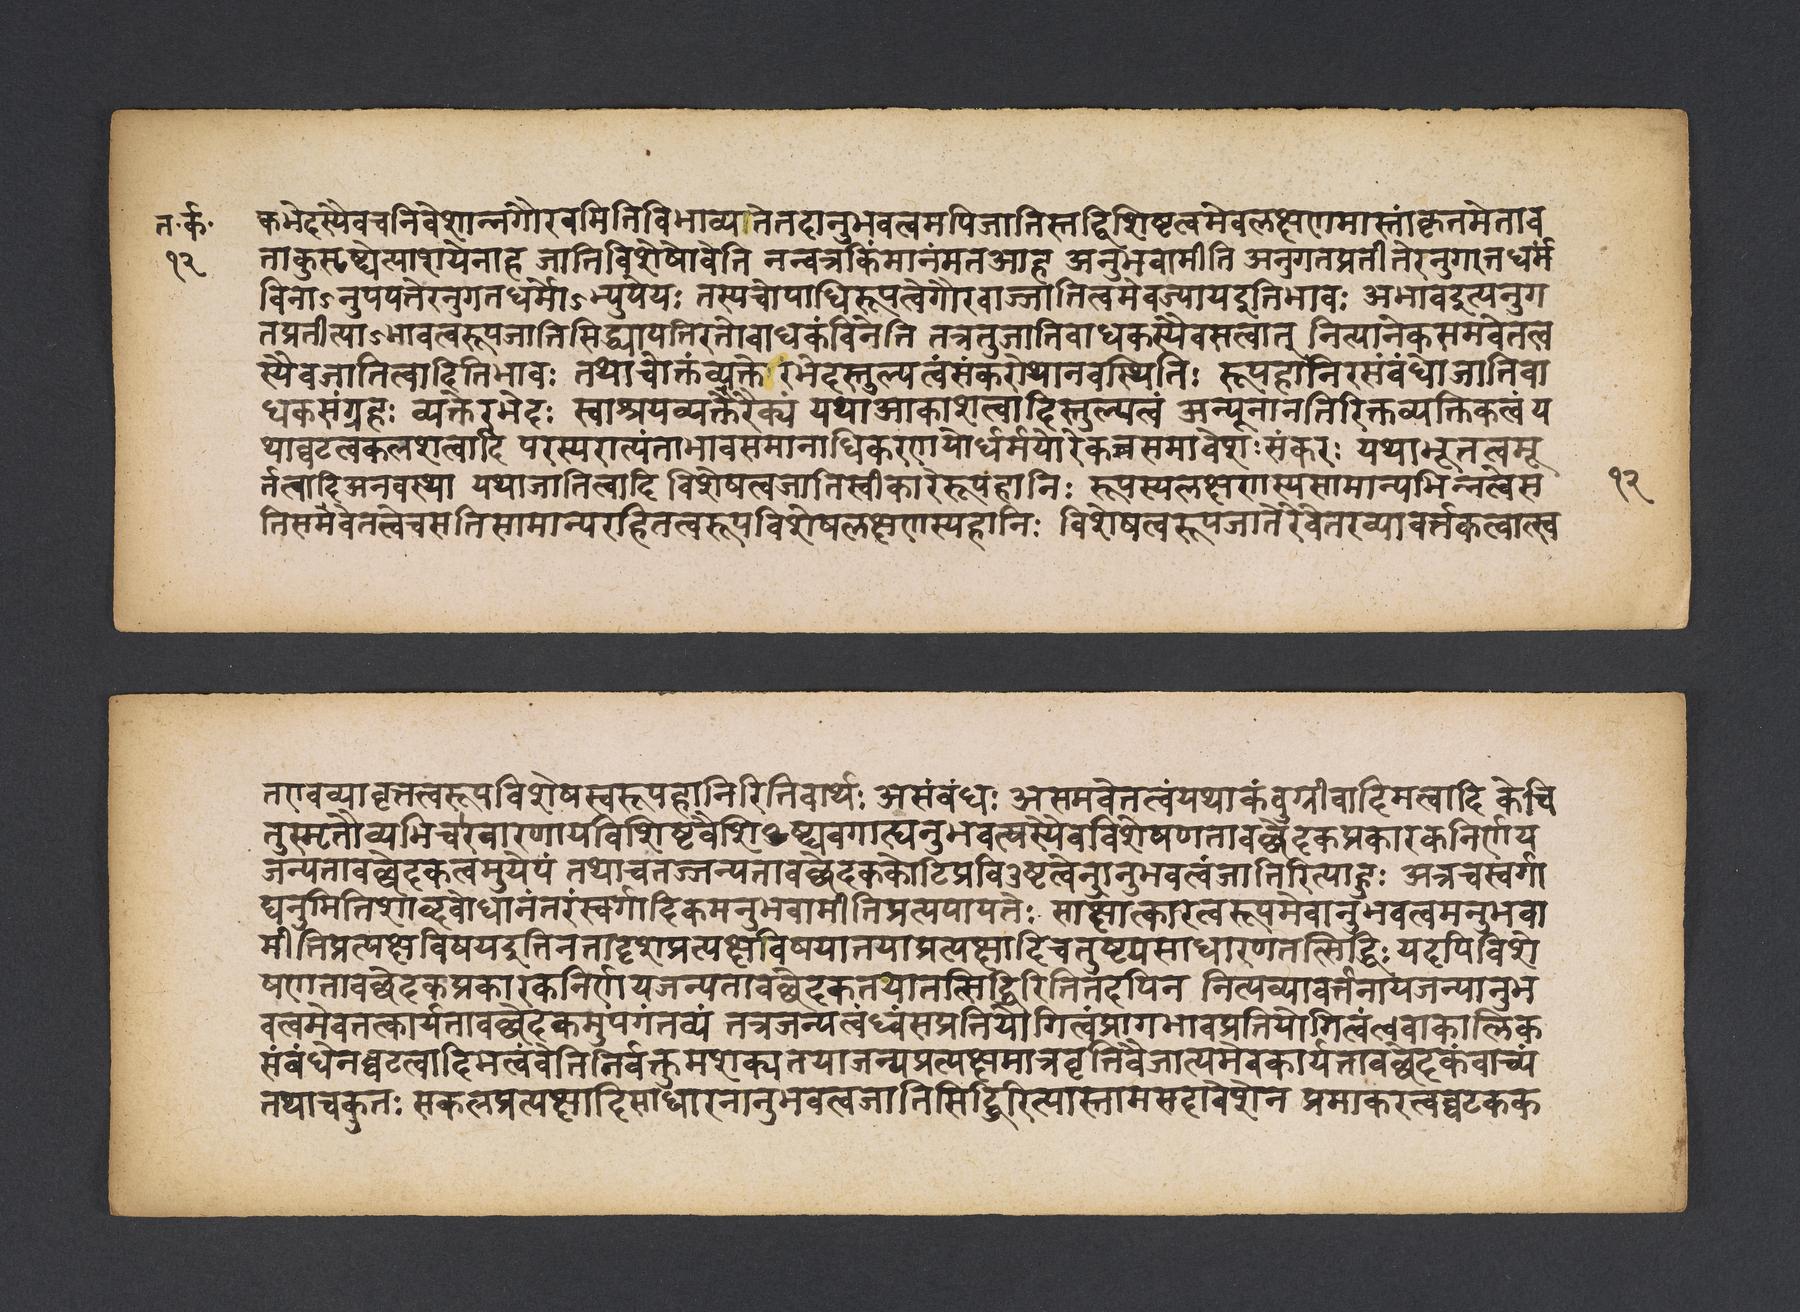 त॰र्क॰
१२
कभेदस्यैवचनिवेशान्नगौरवमितिविभाव्यतेतदानुभवत्वमपिजातिस्तद्विशिष्टत्वमेवलक्षणमास्तांकृतमेताव
ताकुसृष्ट्येत्याशयेनाह जातिविशेषोवेति नन्वत्रकिंमानंमतआह अनुभवामीति अनुगतप्रतीतेरनुगातधर्मं
विनाऽनुपपत्तेरनुगतधर्मोऽभ्युपेयः तस्यचोपाधिरूपत्वेगौरवाज्जातित्वमेवज्यायइतिभावः अभावइत्यनुग
तप्रतीत्याऽभावत्वरूपजातिसिद्ध्यापत्तिरतोबाधकंविनेति तत्रतुजातिबाधकस्यैवसत्वात् नित्यानेकसमवेतत्व
स्यैवजातित्वादितिभावः तथाचोक्तंव्यक्तेरभेदस्तुल्यत्वंसंकरोथानवस्थितिः रूपहानिरसंबंधोजातिबा
धकसंग्रहः व्यक्तेरभेदः स्वाश्रयव्यक्तेरैक्यं यथाआकाशत्वादिस्तुल्यत्वं अन्यूनानतिरिक्तव्यक्तिकत्वं य
थाघटत्वकलशत्वादि परस्परात्यंताभावसमानाधिकरणयोर्धर्मयोरेकत्रसमावेशःसंकरः यथाभूतत्वमू
र्त्तत्वादिअनवस्था यथाजातित्वादि विशेषत्वजातिस्वीकारेरूपहानिः रूपस्यलक्षणस्यसामान्यभिन्नत्वेस
तिसमवेतत्वेचसतिसामान्यरहितत्वरूपविशेषलक्षणस्यहानिः विशेषत्वरूपजातेरेवेतरव्यावर्त्तकत्वात्स्व
१२
तएवव्यावृत्तत्वरूपविशेषस्वरूपहानिरितिवार्थः असंबंधः असमवेतत्वंयथाकंबुग्रीवादिमत्वादि केचि
त्तुस्मृतौव्यभिचारवारणायविशिष्टवैशिष्ट्यवगाह्यनुभवत्वस्यैवविशेषणतावच्छेदकप्रकारकनिर्णय
जन्यतावच्छेदकत्वमुपेयं तथाचतज्जन्यतावच्छेदककोटिप्रविष्टत्वेनानुभवत्वंजातिरित्याहुः अत्रचस्वर्गा
द्यनुमितिशाब्दबोधानंतरंस्वर्गादिकमनुभवामीतिप्रत्ययापत्तेः साक्षात्कारत्वरूपमेवानुभवत्वमनुभवा
मीतिप्रत्यक्षविषयइतिनतादृशप्रत्यक्षविषयातयाप्रत्यक्षादिचतुष्टयसाधारणतत्सिद्धिः यदपिविशे
षणतावच्छेदकप्रकारकनिर्णयजन्यतावच्छेदकतयातत्सिद्धिरितितदपिन नित्यव्यावर्त्तनायजन्यानुभ
वत्वमेवतत्कार्यतावच्छेदकमुपगंतव्यं तत्रजन्यत्वंध्वंसप्रतियोगित्वंप्रागभावप्रतियोगित्वंवाकालिक
संबंधेनघटत्वादिमत्वंवेतिनिर्वक्तुमशक्यतयाजन्यप्रत्यक्षमात्रवृत्तिवैजात्यमेवकार्यतावच्छेदकंवाच्यं
तथाचकुतः सकलप्रत्यक्षादिसाधारनानुभवत्वजातिसिद्धिरित्यास्तामसदावेशेन प्रमाकरत्वघटकक